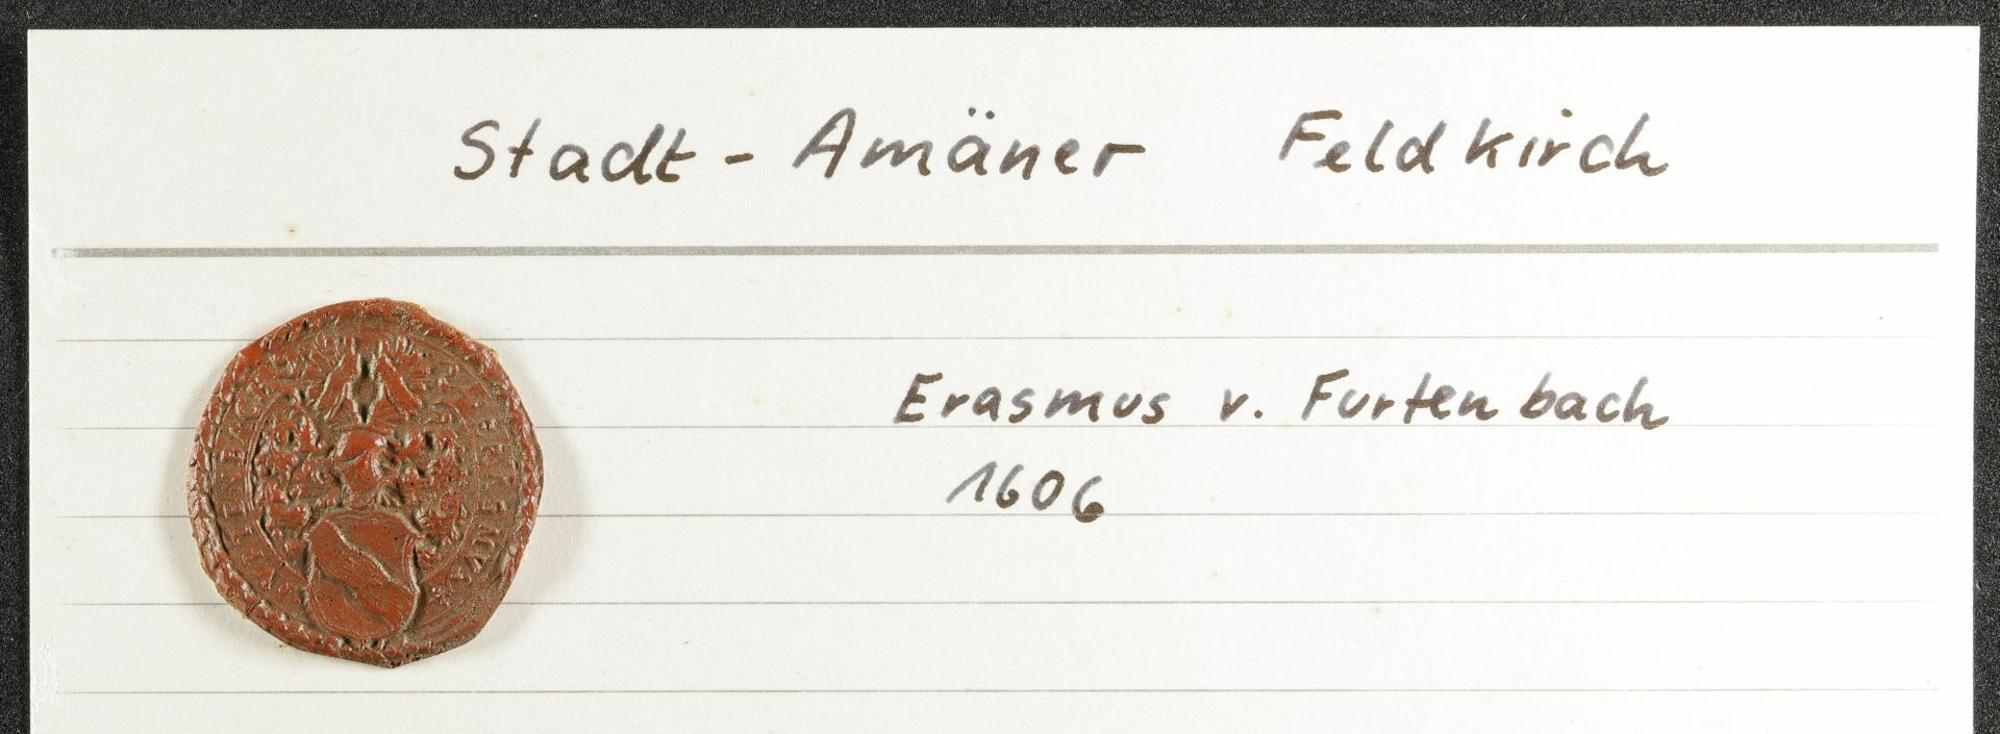 Stadt - Amäner Feldkirch
Erasmus v. Furtenbach
1606